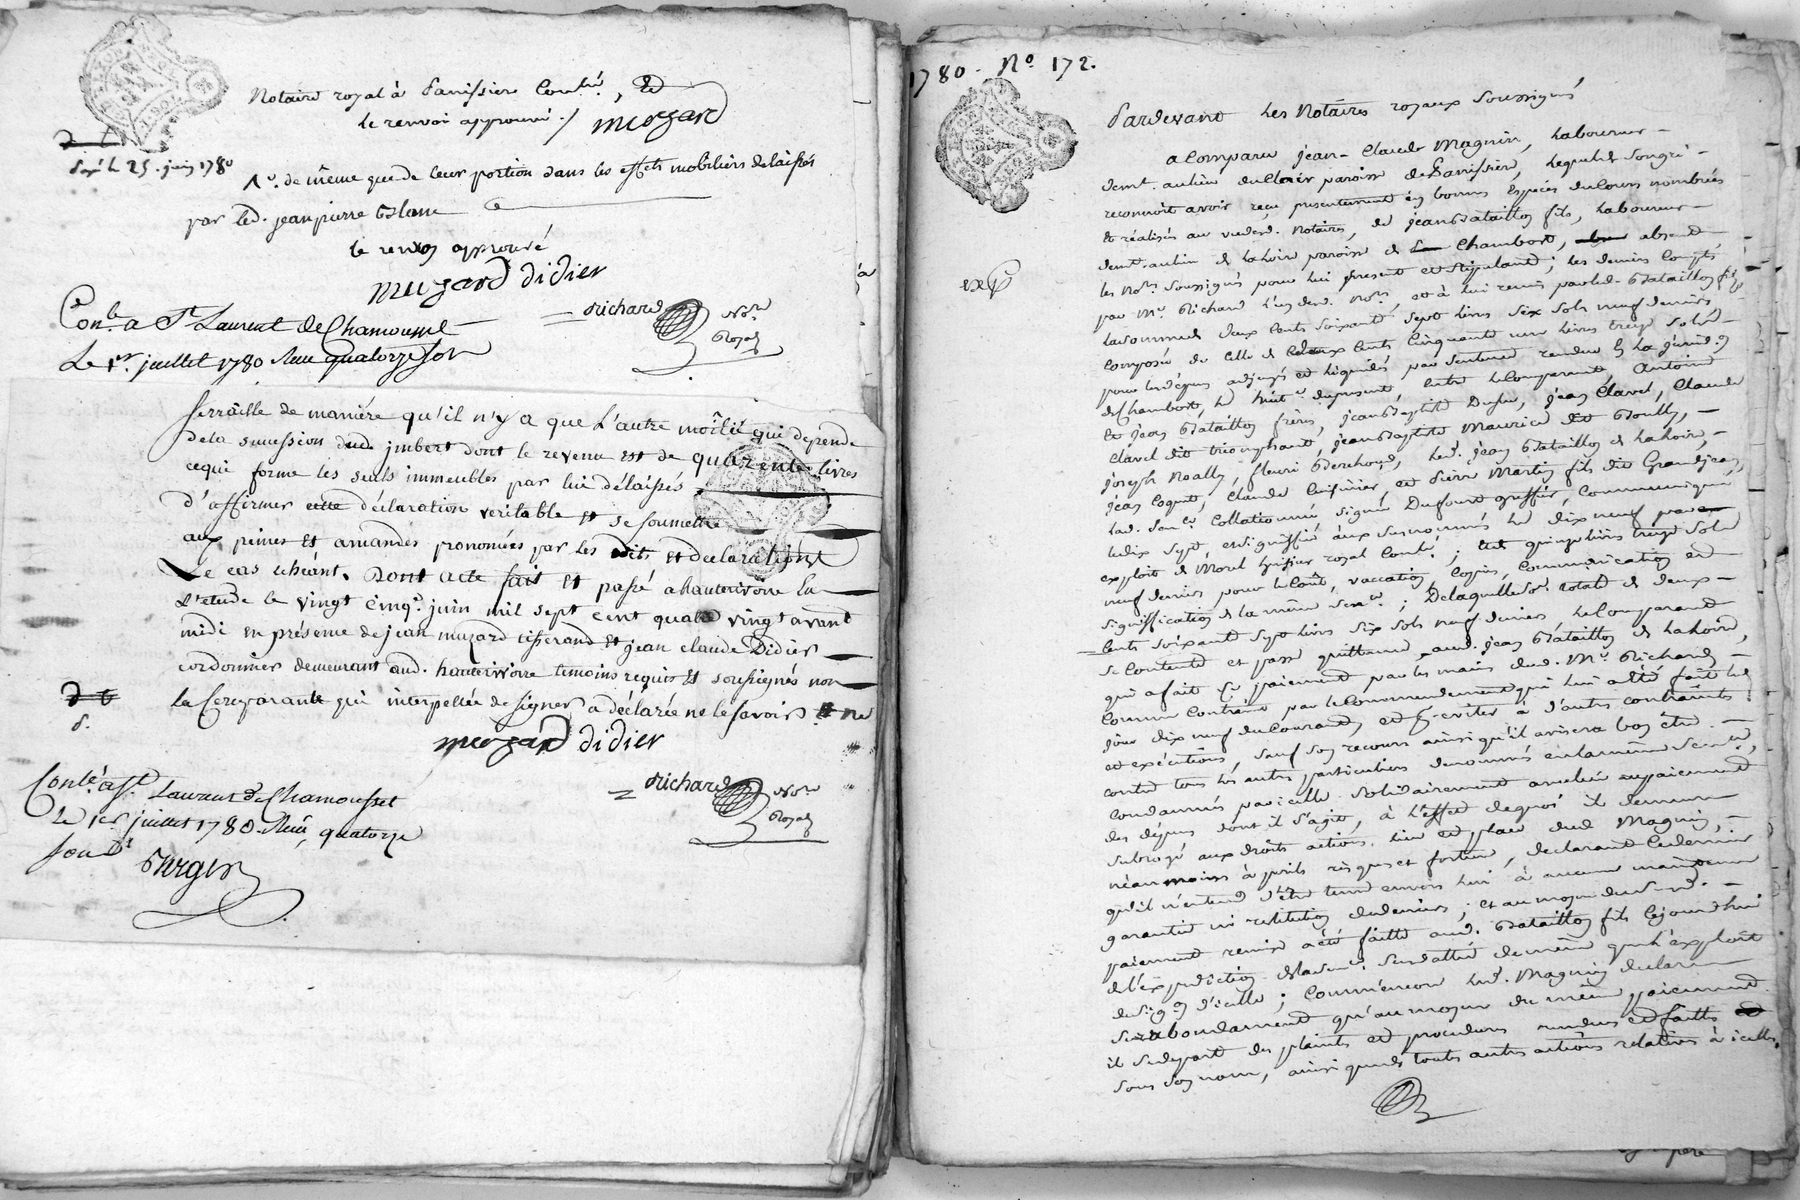 Notaire royal à Panissiere
le renvoi approuvé ./. muzard
25. juin 1780
1°. de même que de leur portion dans les effets mobiliers delaissés
par led. jean pierre
le renvoy approuvé
muzard didier
Richard Nore Royal
Con.lé a St Laurent de Chamousset
Le 1er. juillet 1780 Reçu quatorze sols
serraille de maniére qu'il n'y a que l'autre moitié qui depende
dela succession dud. imbert dont le revenu est de quarente livres
cequi forme les seuls immeubles par lui délaissés
d'affirmer cette déclaration veritable et se soumettre
aux peines et amandes prononcées par les edits et declarations
Le cas echéant. Dont acte fait et passé a hauterivoire en
L'etude le vingt cinq.e juin mil sept cent quatre vingt avant
midi en présence de jean muzard tisserand et jean claude Didier
cordonnier demeurant aud. hauterivoire temoins requis et soussignés non
la Comparante qui interpellée de signer a déclarée ne le savoir
muzard didier
Richard Nore Royal
Con.lé a St Laurent de Chamousset
Le 1er juillet 1780. Reçu quatorze
sous
1780. No. 172.
Pardevant Les Notaires royaux Soussignés
a Comparu Jean-Claude Magnin, Laboureur
demt. au lieu du paroisse de Panissiere, Lequel de son gré
reconnoit avoir reçu presentement en bonnes Especes du Cours nombrées
et réalisées au vu desd. Notaires, de jean Bataillon fils, Laboureur
demt. au lieu de Lahoire paroisse de Chambost, absent
les Nores. Soussignés pour lui present et stipulant; les deniers Comptés
exp
par Me Richard L'un desd. Nores, et à lui remis par led. Bataillon fils
la somme de deux Cents soixante sept livres six sols neuf deniers
Composée de celle de deux Cents Cinquante une livres treize sols
pour les dépens adjugés et liquidés par sentence rendue en la jurid.on
de Chambost, le huit du present, entre le Comparant, Antoine
et jean Bataillon freres, jean Baptiste jean Clavel, Claude
Clavel dit triomphant, jean Baptiste Maurice dit
joseph fleuri led. jean Bataillon de Lahoire,
jean Coquet, Claude et Pierre Martin fils dit Grandjean,
lad. Sence. Collationnée signée Dufour greffier, Communiquée
le dix sept, et signiffiée aux surnommés le dix neuf par
exploit de Morel huissier royal Contlé.; et quinze livres treize sols
neuf deniers pour le Coût, vaccation, Copies, Communication et
signiffication de la même Sence.; De laquelle So.e totale de deux
Cents soixante sept livres six sols neuf deniers le Comparant
se Contente et passe quittance aud. jean Bataillon de Lahoire,
qui a fait ce paiement par les mains dud. Me. Richard
Comme Contraint par le Commandement qui lui a été fait le
jour dix neuf du Courant, et pr. eviter à d'autres contraintes
et exécutions, sauf son recours ainsi qu'il avisera bon être
contre tous les autres particuliers denommés en la même Sence.,
Condamnés par icelle solidairement avec lui au paiement
des dépens dont il s'agit, à l'effet de quoi il demeure
subrogé aux droits actions, lieu et place dud. Magnin,
néanmoins à perils risques et fortune, declarant Ce dernier
qu'il n'entend d'être tenu envers lui à aucune maintenue
garantie ni restitution de deniers; et au moyen du Susd.
paiement remise a été faitte aud. Bataillon fils Cejourd'hui
de l'expedition de la Sence. Susdattée de même que de l'exploit
de sig.on d'icelle; Comme encore led. Magnin declare
surabondament qu'au moyen du même paiement
il se depart des plaintes et procedures rendues et faittes
sous son nom, ainsi que de toutes autres actions relatives à icelles.